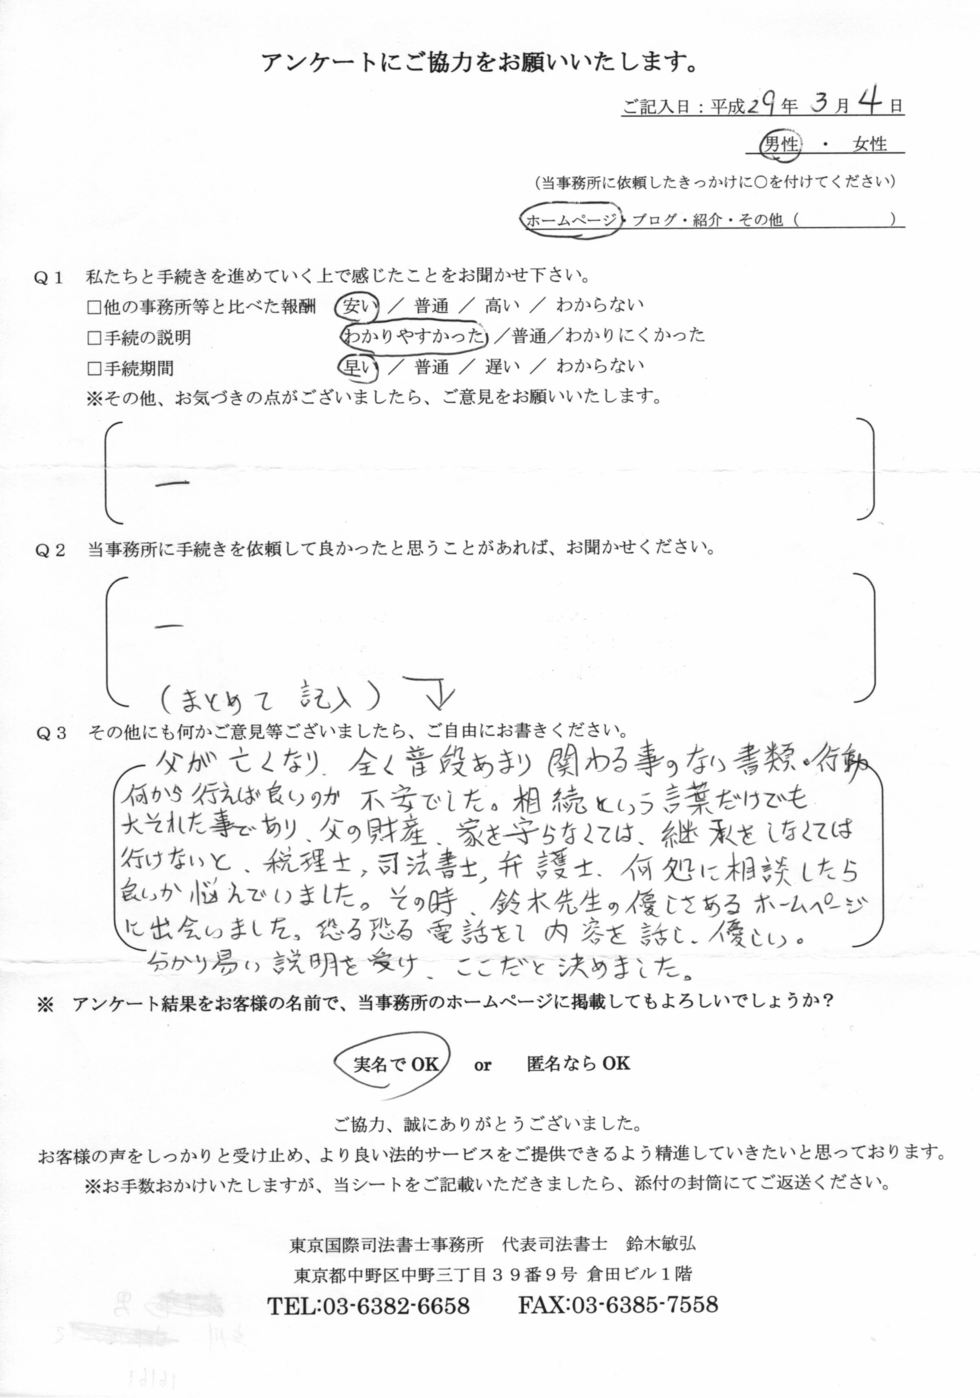 アンケートにご協力をお願いいたします。
ご記入日：平成29年 3月 4日
男性 ・ 女性
（当事務所に依頼したきっかけに○を付けてください）
ホームページ・ブログ・紹介・その他（　　　　　）
Ｑ１ 私たちと手続きを進めていく上で感じたことをお聞かせ下さい。
□他の事務所等と比べた報酬 安い ／ 普通 ／ 高い ／ わからない
□手続の説明 わかりやすかった ／普通／わかりにくかった
□手続期間 早い ／ 普通 ／ 遅い ／ わからない
※その他、お気づきの点がございましたら、ご意見をお願いいたします。
ー
Ｑ２ 当事務所に手続きを依頼して良かったと思うことがあれば、お聞かせください。
ー
（まとめて 記入）↓
Ｑ３ その他にも何かご意見等ございましたら、ご自由にお書きください。
父が亡くなり、全く普段あまり関わる事のない書類・行動
何から行えば良いのか 不安でした。相続という言葉だけでも
大それた事であり、父の財産、家を守らなくては、継承をしなくては
行けないと、税理士,司法書士,弁護士、何処に相談したら
良いか悩んでいました。その時、鈴木先生の優しさあるホームページ
に出会いました。恐る恐る電話をし 内容を話し、優しい。
分かり易い説明を受け、ここだと決めました。
※ アンケート結果をお客様の名前で、当事務所のホームページに掲載してもよろしいでしょうか？
実名でOK or 匿名ならOK
ご協力、誠にありがとうございました。
お客様の声をしっかりと受け止め、より良い法的サービスをご提供できるよう精進していきたいと思っております。
※お手数おかけいたしますが、当シートをご記載いただきましたら、添付の封筒にてご返送ください。
東京国際司法書士事務所　代表司法書士　鈴木敏弘
東京都中野区中野三丁目３９番９号 倉田ビル１階
TEL:03-6382-6658　FAX:03-6385-7558